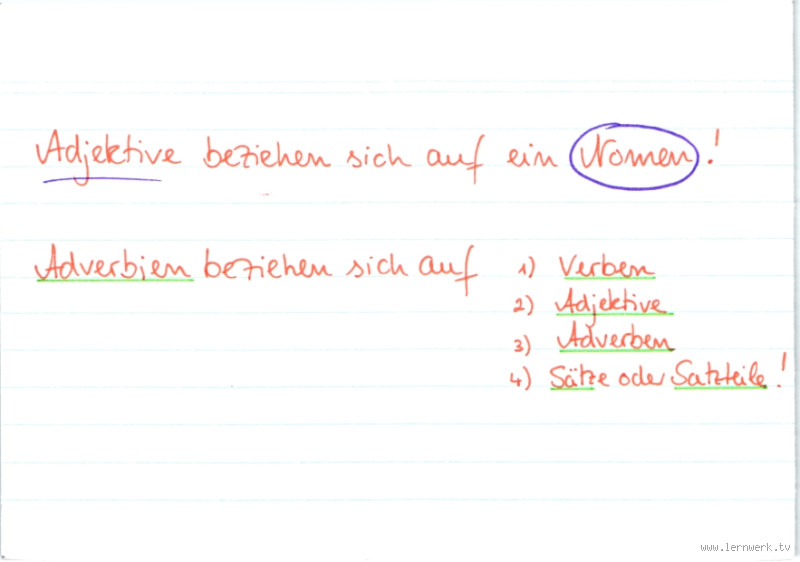 Adjektive beziehen sich auf ein Nomen!
Adverbien beziehen sich auf 1) Verben
2) Adjektive
3) Adverben
4) Sätze oder Satzteile!
www.lernwerk.tv